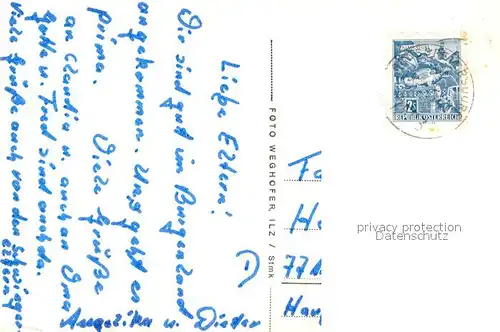 Liebe Eltern!
Wir sind gut in Burgenland
angekommen. Uns geht es
prima. Viele Grüße
an Claudia u. auch an Oma
Gotha u. Fred sind auch da.
Viele Grüße auch von den Schwieger
eltern
Angelika u. Dieter
FOTO WEGHOFER ILZ / Stmk
REPUBLIK ÖSTERREICH
D
Fa
H
771
Hau
privacy protection
Datenschutz